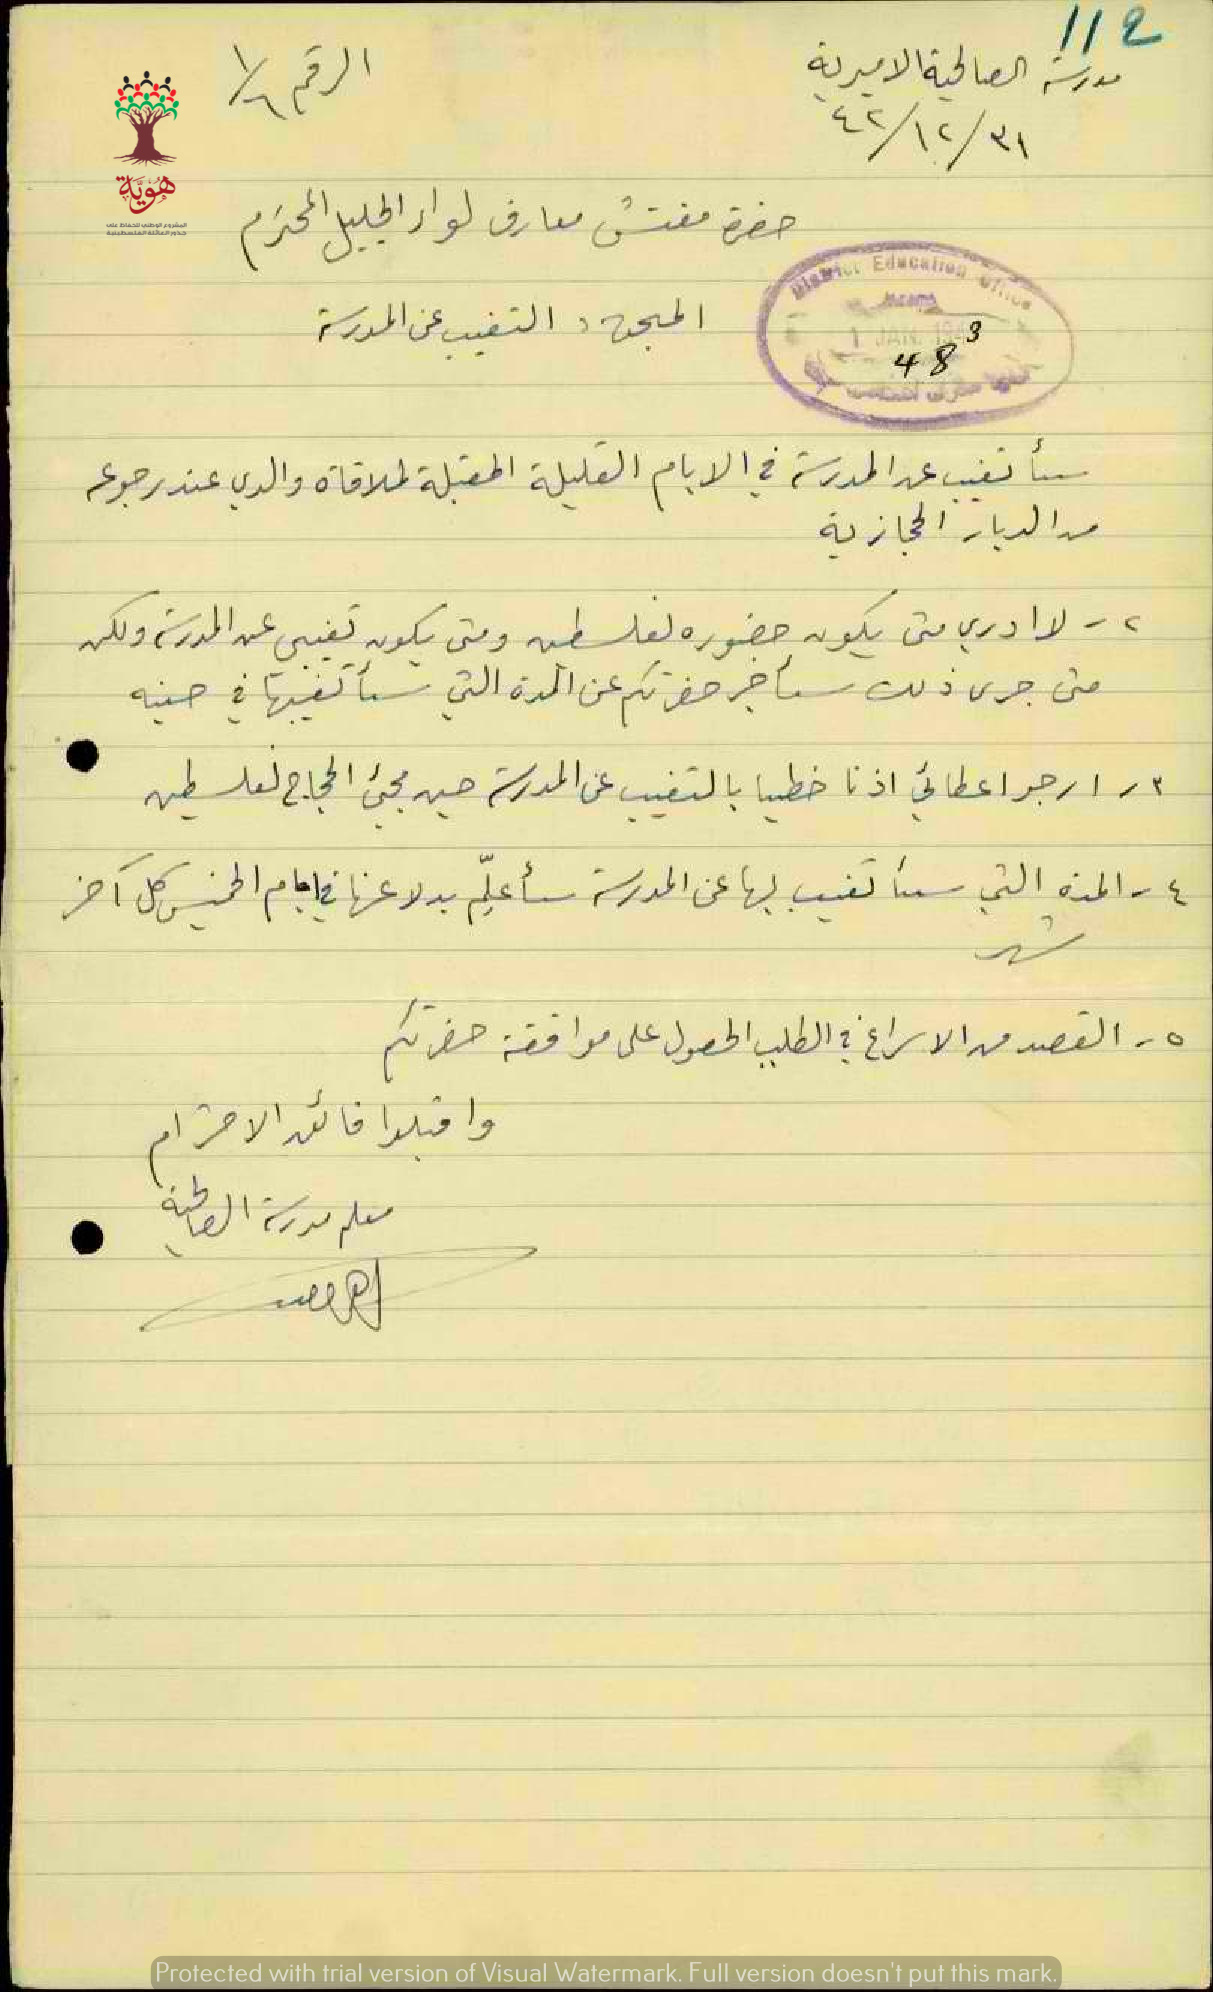 112
مدرسة الصالحية الاميرية
الرقم ١/٦
٣١/١٢/٤٢
هُوِيَّة
المشروع الوطني للحفاظ على
جذور العائلة الفلسطينية
حضرة مفتش معارف لواء الجليل المحترم
District Education Office
1 JAN. 1943
48
المبحث: التغيب عن المدرسة
سأتغيب عن المدرسة في الايام القليلة المقبلة لملاقاة والدي عند رجوعه
من الديار الحجازية
٢- لا ادري متى يكون حضوره لفلسطين ومتى يكون تغيبي عن المدرسة ولكن
متى جرى ذلك سأخبر حضرتكم عن المدة التي سأتغيبها في حينه
٣- ارجو اعطائي اذنا خطيا بالتغيب عن المدرسة حين مجيئ الحجاج لفلسطين
٤- المدة التي سأتغيب بها عن المدرسة سأعلّم بدلا عنها في ايام الخميس كل آخر
شهر
٥- القصد من الاسراع في الطلب الحصول على موافقة حضرتكم
واقبلوا فائق الاحترام
معلم مدرسة الصالحية
Protected with trial version of Visual Watermark. Full version doesn't put this mark.